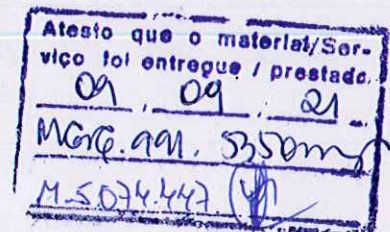 Atesto que o material/Ser-
viço foi entregue / prestado.
09 . 09 . 21
M.5.074.447